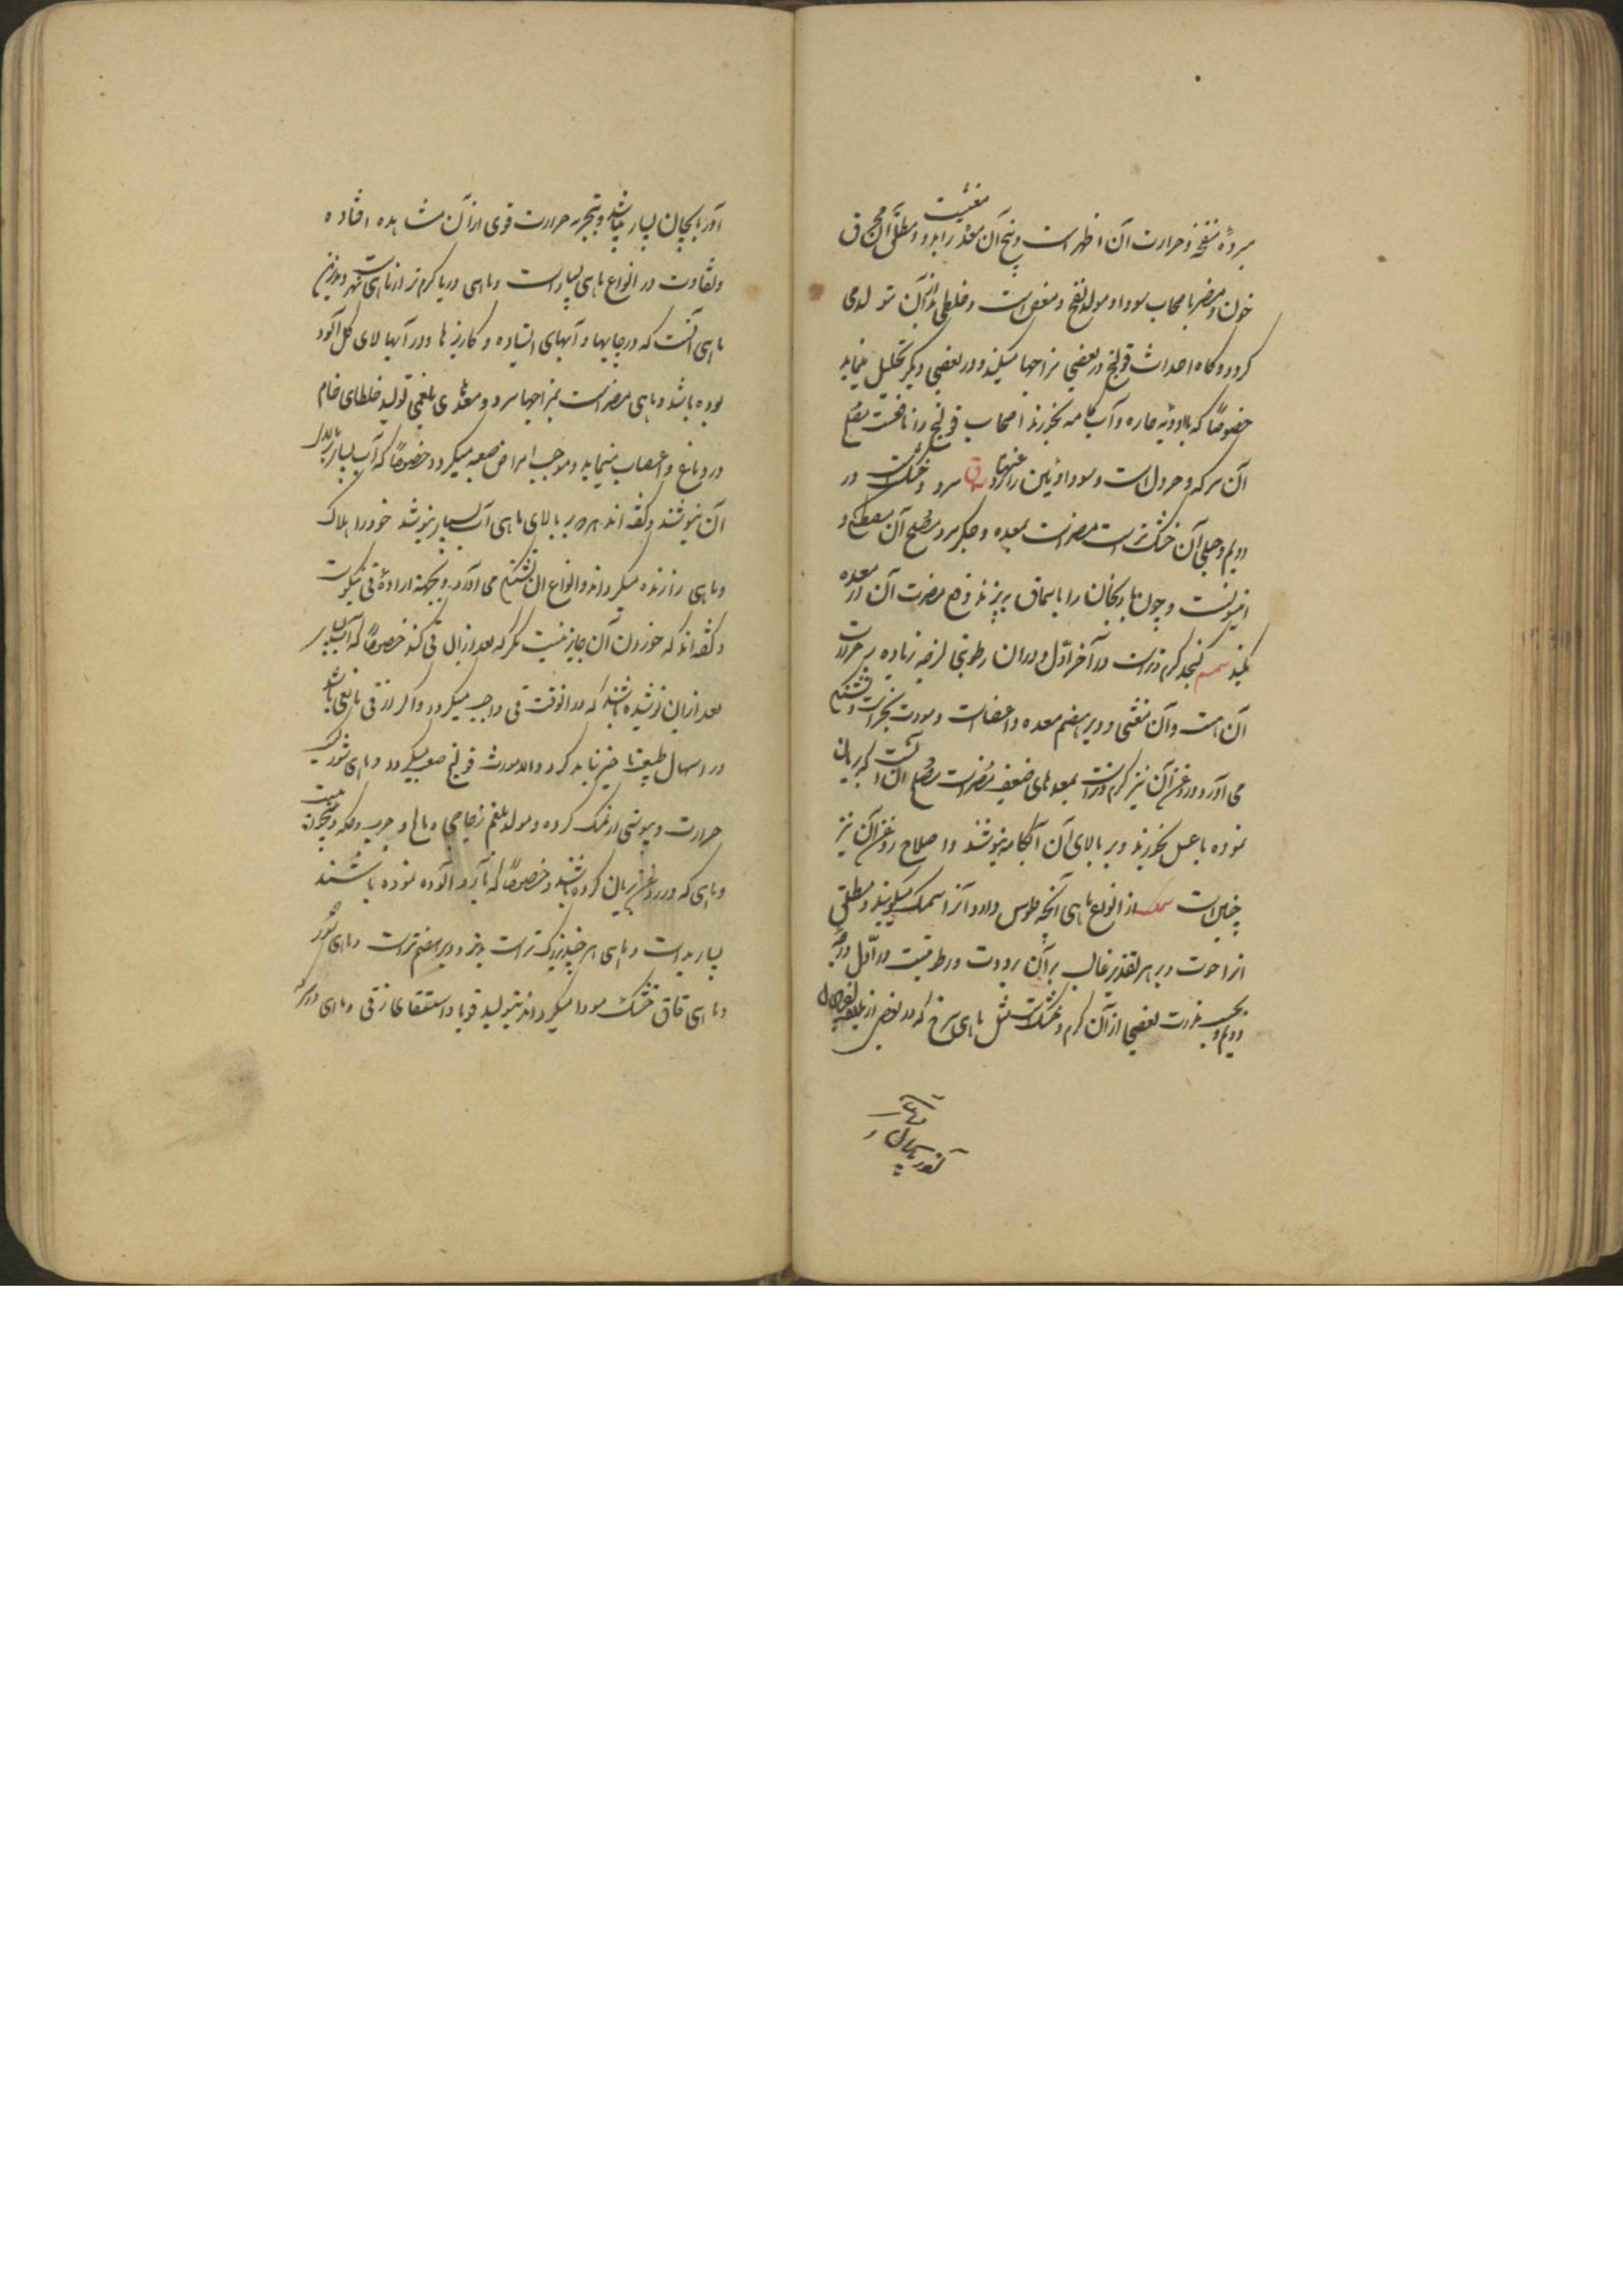 سردهٔ منفخه و حرارت آن اظهر است و پنج آن مغذی زاید و مطلق آن محرق
خون و مضر باصحاب سودا و مولد نفخ و مغص است و خلطی بد از آن متولد می
کردد و کاه احداث قولنج در بعضی مزاجها میکند و در بعضی دیکر تحلیل مینماید
خصوصاً که با ادویه حاره و آب کامه بخورند اصحاب قولنج را نافعست مصلح
آن سرکه و خردل است و سوداوئین را سرد و خشکست در
دویم و جبلی آن خشک تر است مضر است بمعده و جکر سرد مصلح آن مصطکی و
انیسونست و چون بادنجان را با سماق بپزند دفع مضرت آن از معده
بکند سمسم کنجد کرم و تر است در آخر اول و در آن رطوبتی لزجه زیاده بر حرارت
آن هست و آن مغثی و دیر هضم معده و اعضاست و مورث بخر است و تشنکی
می آورد و روغن آن نیز کرم و تر است بمعده های ضعیف مضر است مصلح آن آنست که بریان
نموده با عسل بخورند و بر بالای آن آبکامه بنوشند و اصلاح روغن آن نیز
چنین است سمک از انواع ماهی آنچه فلوس دارد آنرا سمک میکویند و مطلق
آنرا حوت و بر هر تقدیر غالب بر آن برودت و رطوبتست در اول درجه
دویم و بحسب ندرت بعضی از آن کرم و خشکست مثل ماهی سرخ که در بعضی از
آذربایجان بسیار میباشد و بتجربه حرارت قوی از آن مشاهده افتاده
و تفاوت در انواع ماهی بسیار است و ماهی دریا کرم تر از ماهی نهر است و بدترین
ماهی آنست که در چاهها و آبهای ایستاده و کاریزها و در آبها لای کل آلود
بوده باشد و ماهی مضر است بمزاجها سرد و معدهٔ بلغمی تولید خلطهای خام
در دماغ و اعصاب مینماید و موجب امراض صعبه میکردد خصوصاً که آب بسیار بر بالای
آن بنوشند و کفته اند هر که بر بالای ماهی آب بسیار بنوشد خود را هلاک
و ماهی را زنده میکرداند و انواع آن تشنکی می آورد و بجهة ارادهٔ قی نیکوست
و کفته اند که خوردن آن جایز نیست مکر که بعد از آن قی کند خصوصاً که آب بسیار
بعد از آن نوشیده باشند که در آنوقت قی واجب میکردد و اکر از قی مانعی باشد
در اسهال طبیعت تاخیر نباید کرد و الا مورث قولنج صعب میکردد و ماهی شور کسب
حرارت و یبوستی از نمک کرده و مولد بلغم زجاجی و مالح و جرب و حکه
و ماهی که در روغن بریان کرده باشند خصوصاً که بآرد آلوده نموده باشند
بسیار بد است و ماهی هر چند بزرک تر است بدتر و دیر هضم تر است و ماهی شور
و ماهی قاق خشک سودا میکرداند بتولید قوبا و استسقاء زقی و ماهی